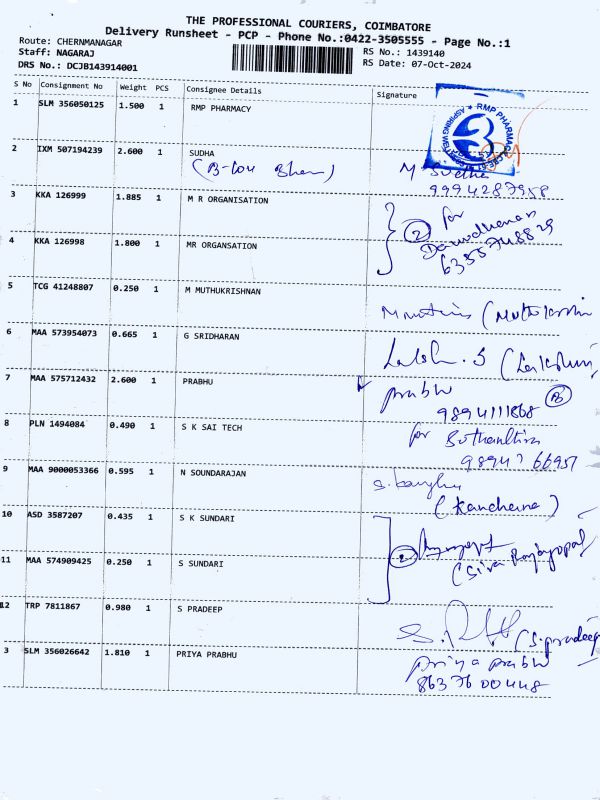 THE PROFESSIONAL COURIERS, COIMBATORE
Delivery Runsheet - PCP - Phone No.:0422-3505555 - Page No.:1
Route: CHERNMANAGAR
RS No.: 1439140
Staff: NAGARAJ
RS Date: 07-Oct-2024
DRS No.: DCJB143914001
S No Consignment No Weight PCS Consignee Details Signature
1 SLM 356050125 1.500 1 RMP PHARMACY
RMP PHARMA
2 IXM 507194239 2.600 1 SUDHA
M
9994287958
3 KKA 126999 1.885 1 M R ORGANISATION
2 for
4 KKA 126998 1.800 1 MR ORGANSATION
6355748829
5 TCG 41248807 0.250 1 M MUTHUKRISHNAN
6 MAA 573954073 0.665 1 G SRIDHARAN
7 MAA 575712432 2.600 1 PRABHU
prabhu
9894111868
8 PLN 1494084 0.490 1 S K SAI TECH
for
9 MAA 9000053366 0.595 1 N SOUNDARAJAN
(Kanchana)
10 ASD 3587207 0.435 1 S K SUNDARI
2
(Siva Rajagopal)
11 MAA 574909425 0.250 1 S SUNDARI
12 TRP 7811867 0.980 1 S PRADEEP
(S.pradeep
3 SLM 356026642 1.810 1 PRIYA PRABHU
priya prabhu
8637600448